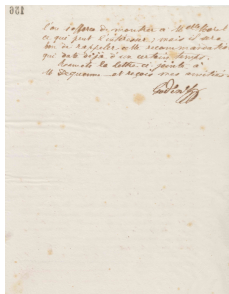 136
l'on s'offre de montrer à
ce qui peut l'intéresser, mais il sera
bon de rappeler cette recommandation
qui date déjà d'un certain temps.
Remets la lettre ci jointe à
M. et reçois mes amitiés